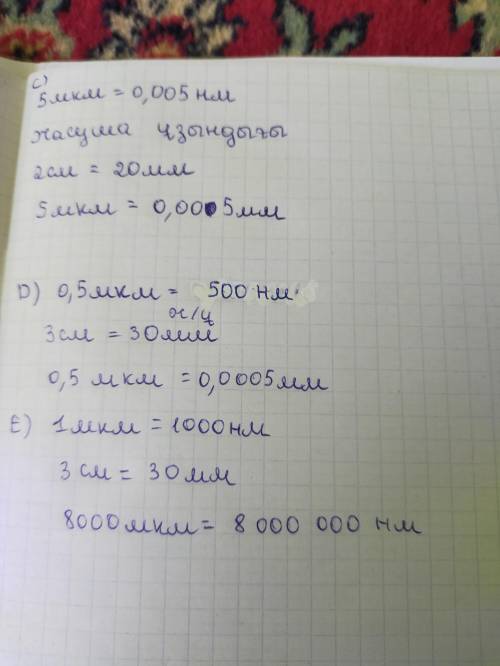 c)
5мкм = 0,005 нм
жасуша ұзындығы
2см = 20мм
5мкм = 0,005мм
D) 0,5мкм = 500 нм
ж/ұ
3см = 30мм
0,5 мкм = 0,0005мм
E) 1мкм = 1000нм
3 см = 30мм
8000мкм = 8 000 000 нм